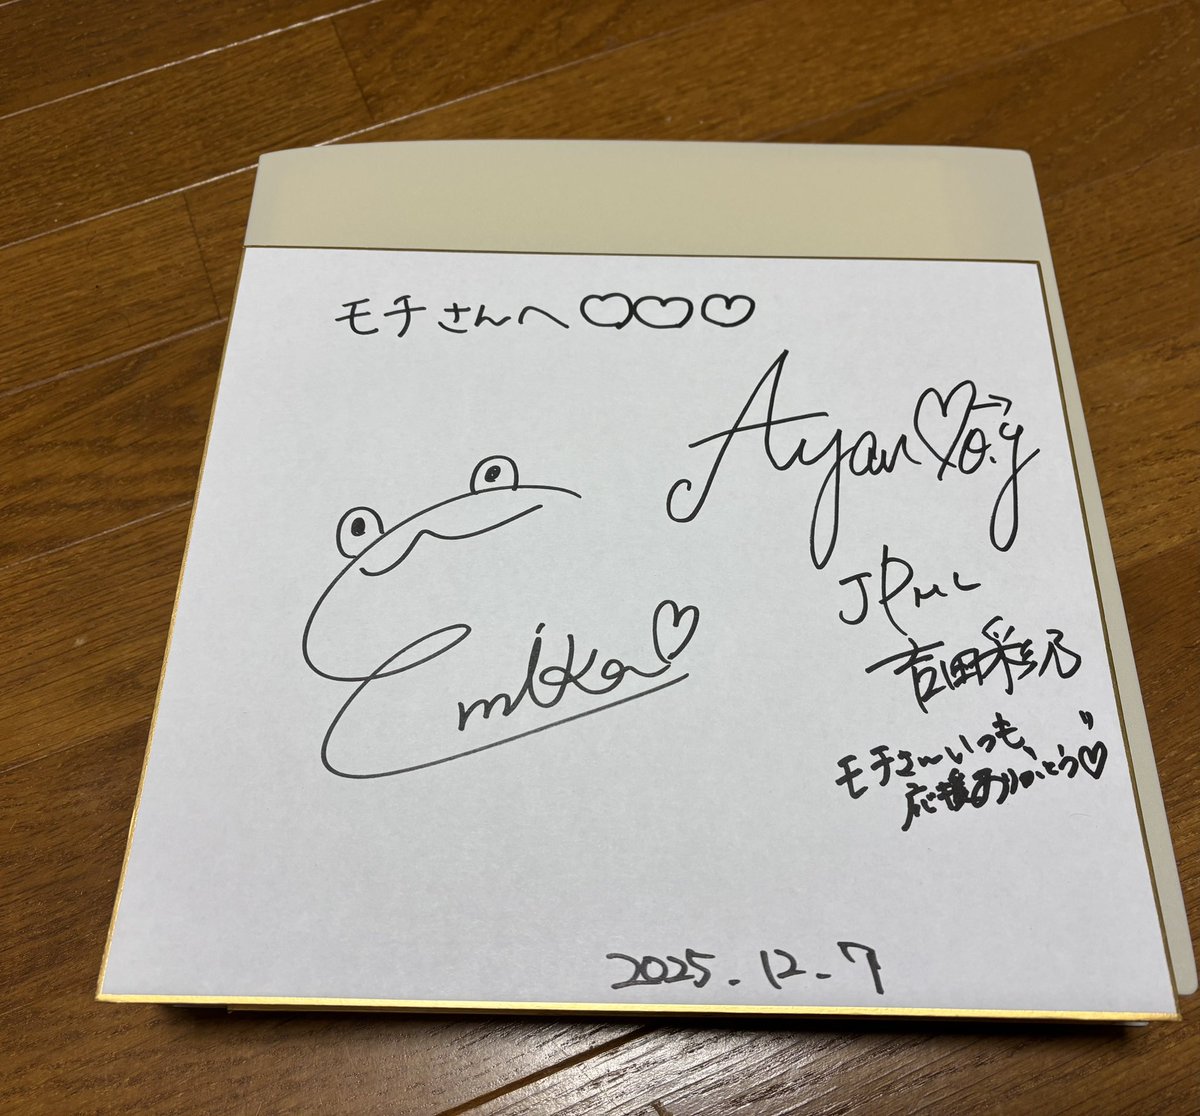 モチさんへ♡♡♡
Ayano.y
JPML
吉田彩乃
モチさんいつも、
応援ありがとう♡
Emika♡
2025.12.7